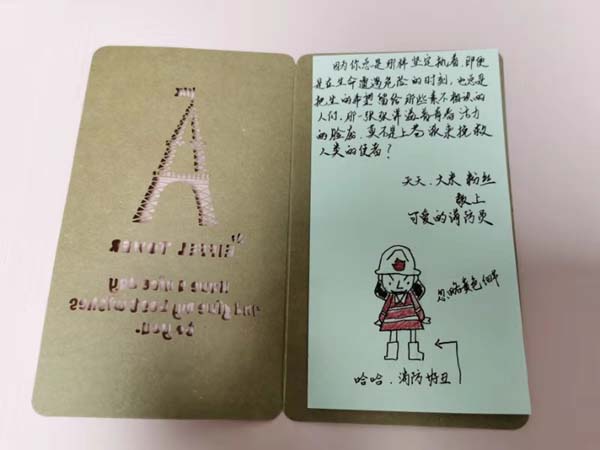 EIFFEL TOWER
Have a nice day
And give my best wishes
to you.
因为你总是那样坚定执着,即便
是在生命遭遇危险的时刻,也总是
把生的希望留给那些素不相识的
人们,那一张张洋溢着青春活力
的脸庞,莫不是上苍派来挽救
人类的使者?
天天、大米 粉丝
敬上
可爱的消防员
忽略黄色
哈哈,消防好丑